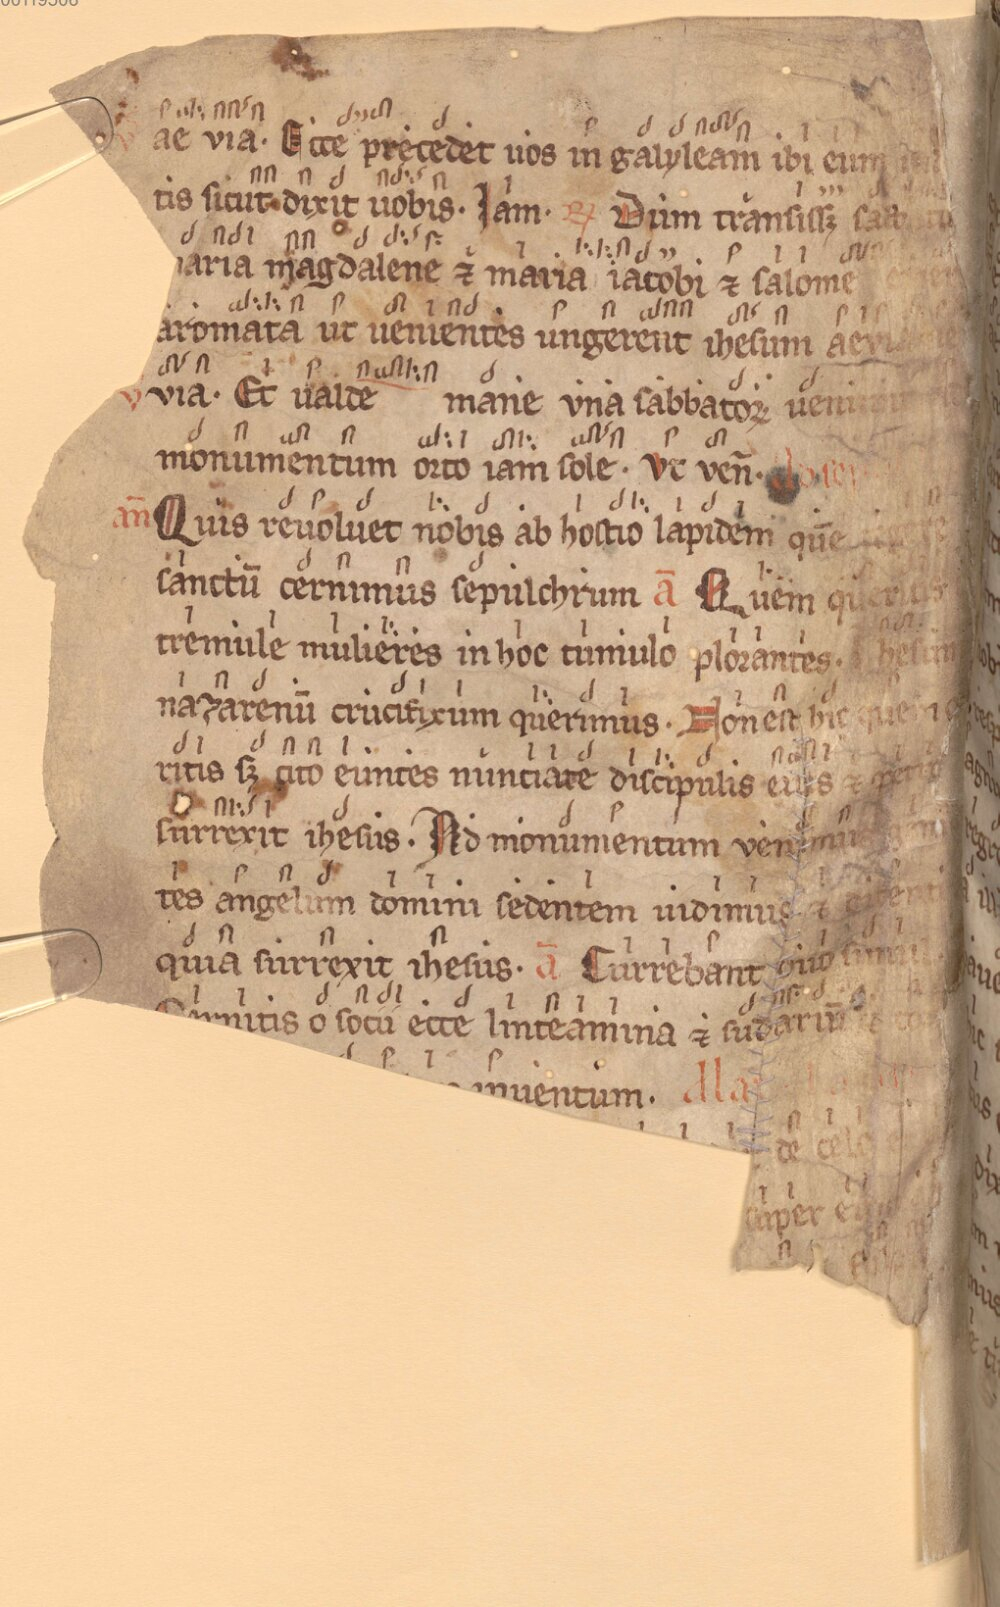 ae via. Ecce precedet uos in galyleam ibi eum
tis sicut dixit uobis. Iam. R Dum transissꝫ sabb
maria magdalene ⁊ maria iacobi ⁊ salome
aromata ut uenientes ungerent ihesum aevi
v via. Et ualde mane vna sabbatoꝝ ueni
monumentum orto iam sole. Vt ven̄.
an̄ Quis reuoluet nobis ab hostio lapidem quē
sanctū cernimus sepulchrum ā Quem queritis
tremule mulieres in hoc tumulo plorantes. ihesum
nazarenū crucifixum querimus. Non est hic quem
ritis sꝫ cito euntes nunciate discipulis eius ⁊ petro
surrexit ihesus. Ad monumentum venimus gem
tes angelum domini sedentem uidimus ⁊ dicent
quia surrexit ihesus. ā Currebant duo simul
Cernitis o socii ecce linteamina ⁊ sudariū
inuentum.
de celo
super